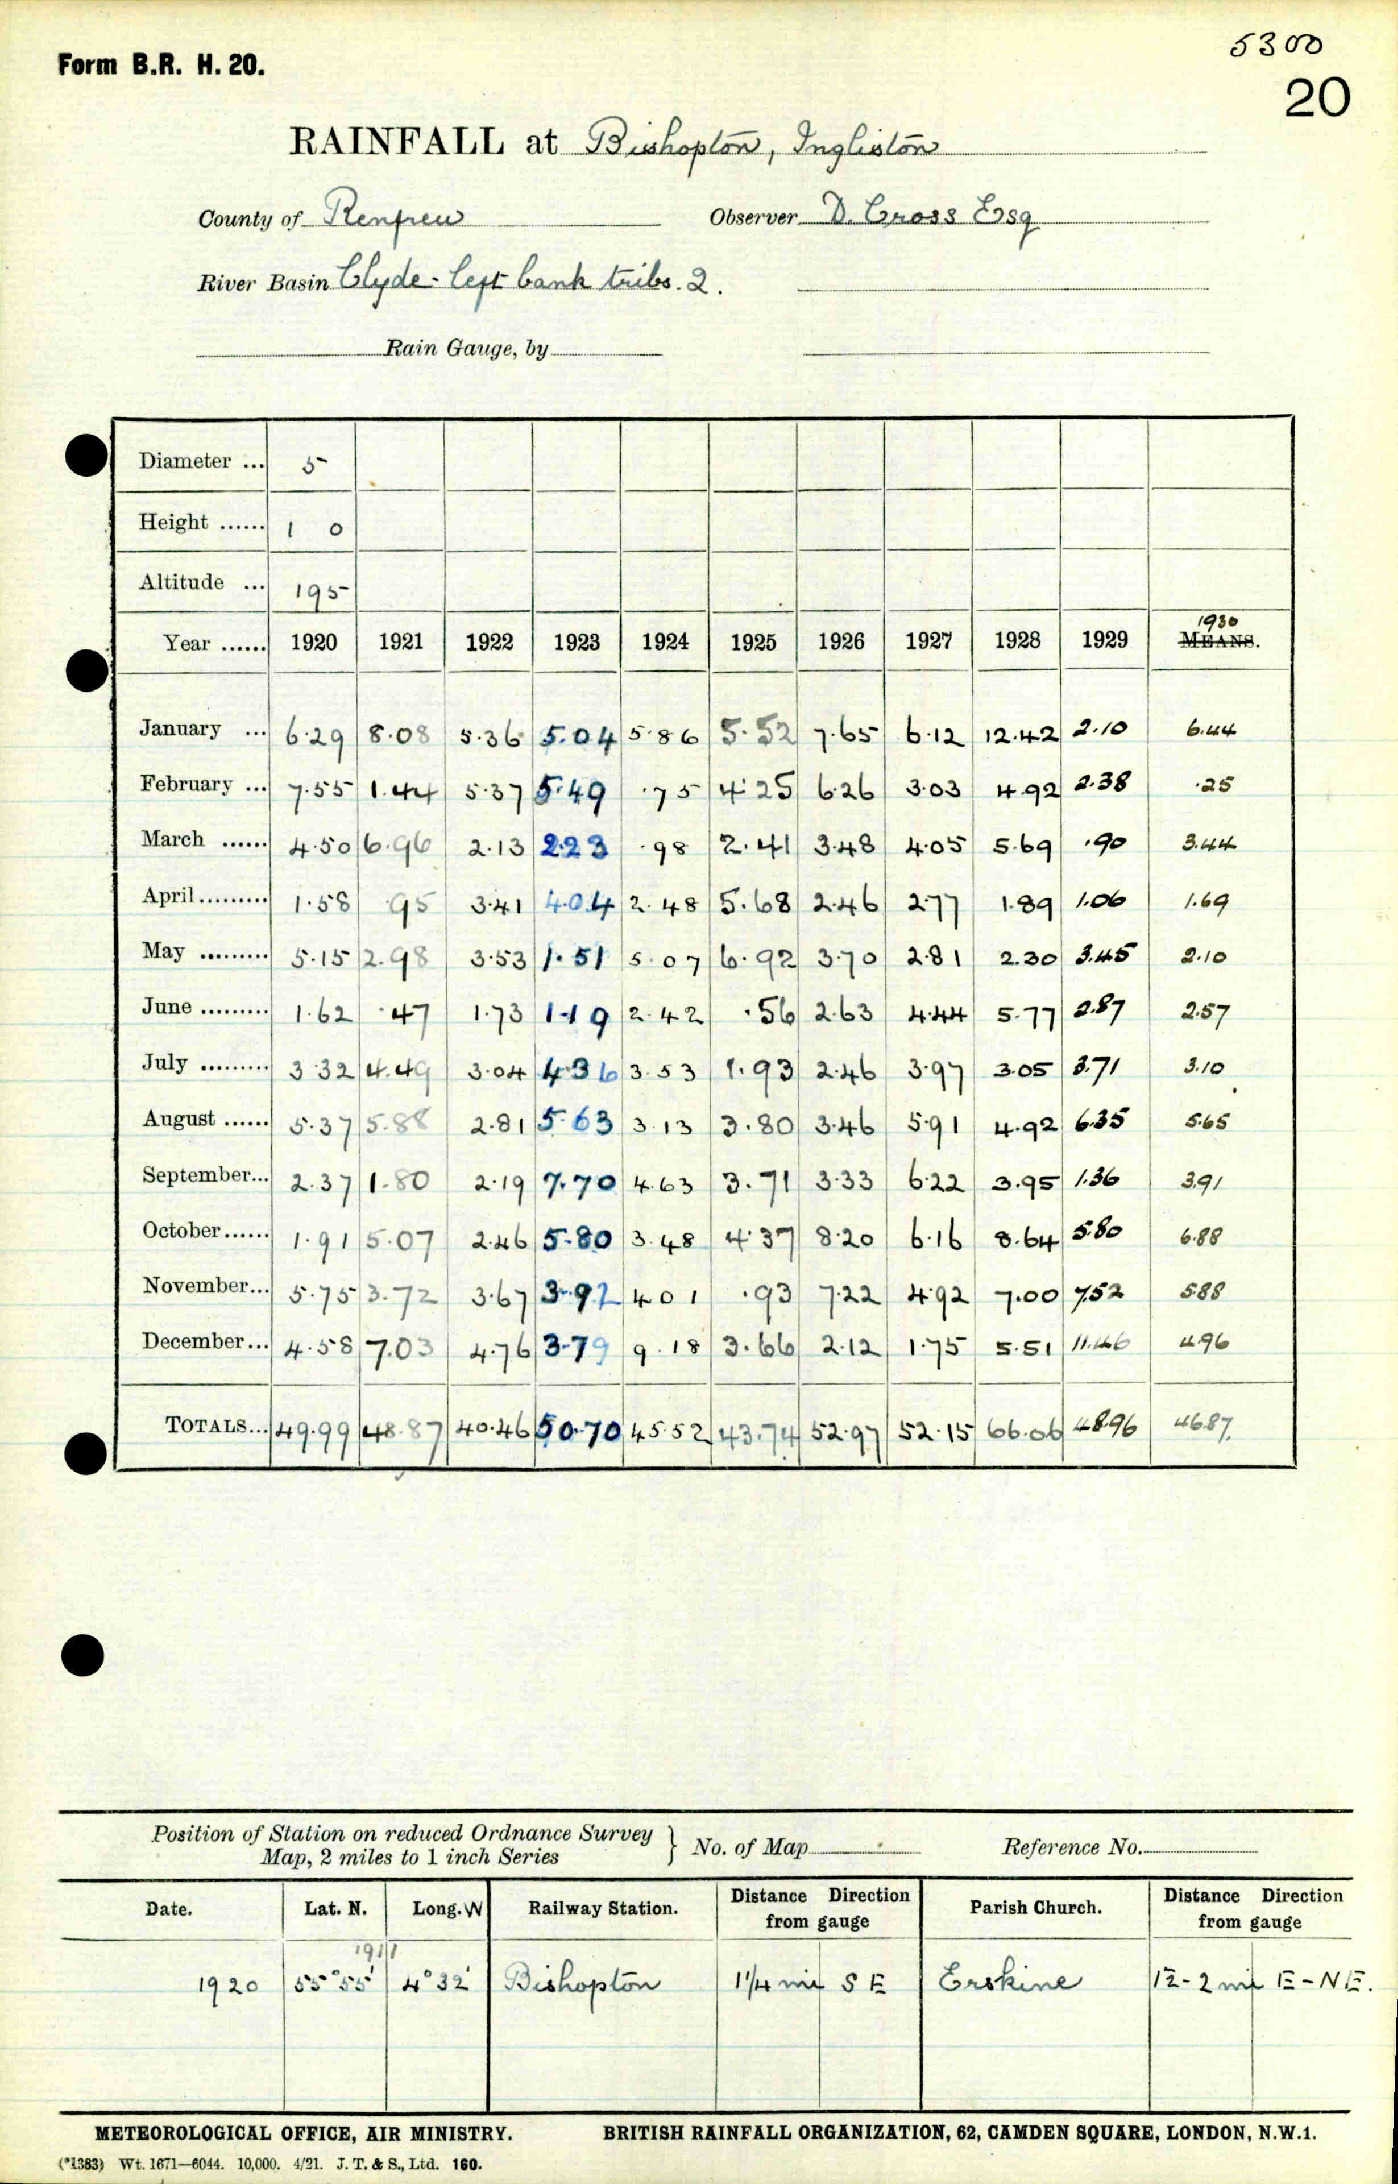 5300
Form B.R. H. 20.
20
RAINFALL at Bishopton, Ingliston
County of Renfrew Observer D. Cross Esq
River Basin Clyde - left bank tribs. 2.
Rain Gauge, by
Diameter ... 5
Height ...... 1 0
Altitude ... 195
1930
Year ...... 1920 1921 1922 1923 1924 1925 1926 1927 1928 1929 MEANS.
January ... 6.29 8.08 5.36 5.04 5.86 5.52 7.65 6.12 12.42 2.10 6.44
February ... 7.55 1.44 5.37 5.49 .75 4.25 6.26 3.03 4.92 2.38 .25
March ...... 4.50 6.96 2.13 2.23 .98 2.41 3.48 4.05 5.69 .90 3.44
April ......... 1.58 .95 3.41 4.04 2.48 5.68 2.46 2.77 1.89 1.06 1.69
May ......... 5.15 2.98 3.53 1.51 5.07 6.92 3.70 2.81 2.30 3.45 2.10
June ......... 1.62 .47 1.73 1.19 2.42 .56 2.63 4.44 5.77 2.87 2.57
July ......... 3.32 4.49 3.04 4.36 3.53 1.93 2.46 3.97 3.05 3.71 3.10
August ...... 5.37 5.88 2.81 5.63 3.13 3.80 3.46 5.91 4.92 6.35 5.65
September... 2.37 1.80 2.19 7.70 4.63 3.71 3.33 6.22 3.95 1.36 3.91
October...... 1.91 5.07 2.46 5.80 3.48 4.37 8.20 6.16 8.64 5.80 6.88
November... 5.75 3.72 3.67 3.92 4.01 .93 7.22 4.92 7.00 7.52 5.88
December... 4.58 7.03 4.76 3.79 9.18 3.66 2.12 1.75 5.51 11.46 4.96
TOTALS... 49.99 48.87 40.46 50.70 45.52 43.74 52.97 52.15 66.06 48.96 46.87
Position of Station on reduced Ordnance Survey
Map, 2 miles to 1 inch Series } No. of Map Reference No.
Date. Lat. N. Long. W Railway Station. Distance Direction from gauge Parish Church. Distance Direction from gauge
1911
1920 55°55' 4°32' Bishopton 1 1/4 mi S E Erskine 12-2 mi E-NE.
METEOROLOGICAL OFFICE, AIR MINISTRY. BRITISH RAINFALL ORGANIZATION, 62, CAMDEN SQUARE, LONDON, N.W.1.
(*1383) Wt. 1671—6044. 10,000. 4/21. J. T. & S., Ltd. 160.